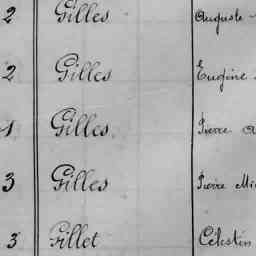 2 Gilles Auguste
2 Gilles Eugène
1 Gilles Pierre
3 Gilles Pierre
3 Gillet Célestin